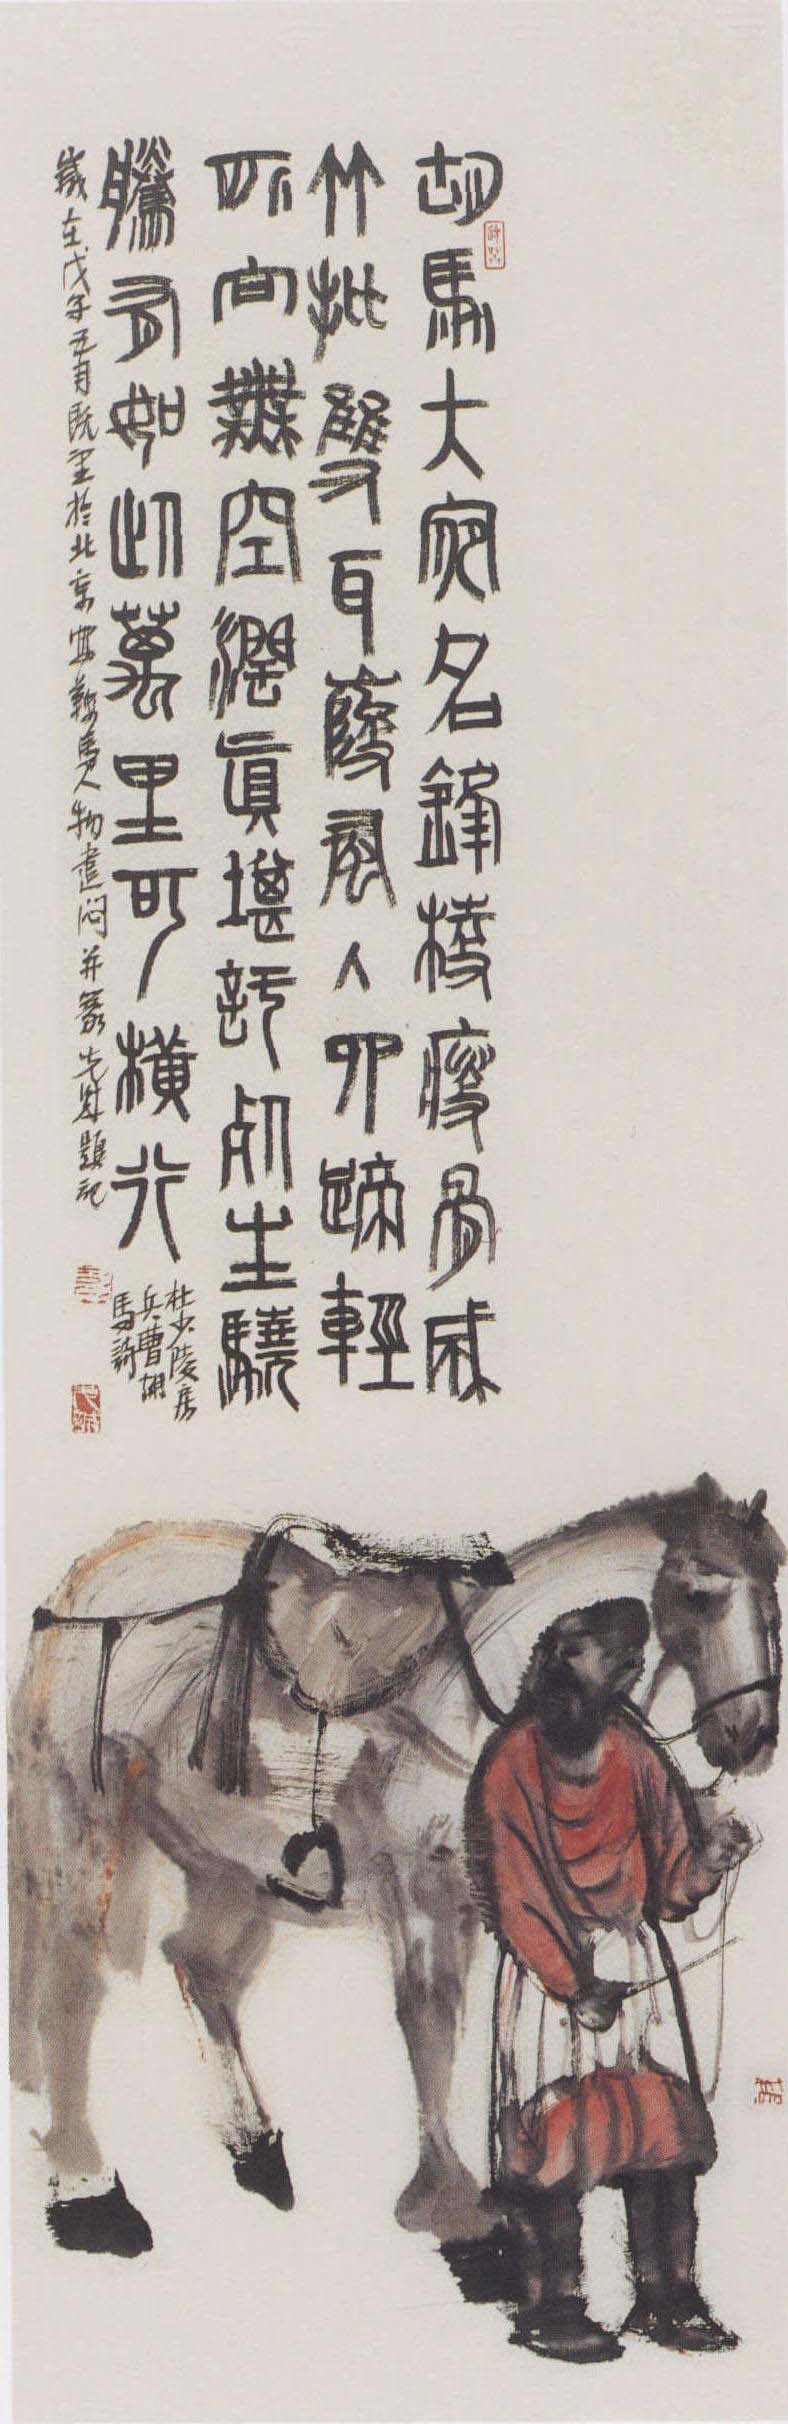 胡馬大宛名鋒棱瘦骨成
竹批雙耳峻風入四蹄輕
所向無空濶真堪託死生驍
騰有如此萬里可橫行
杜少陵房
兵曹胡
馬詩
歲在戊子五月既望於北京寫鞍馬人物遣悶并篆題記